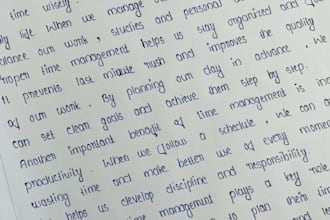 time wisely.
ly life. When we manage ou
balance our work, studies and personal
proper time management helps us stay organized and
It prevents last minute rush and improves the quality
of our work. By planning our day in advance, we
can set clean goals and achieve them step by step.
Another important benefit of time management is inc
productivity. When we follow a schedule, we can
wasting time and make better use of every momen
helps us develop discipline and responsibility.
time management plays a key role
plan their time